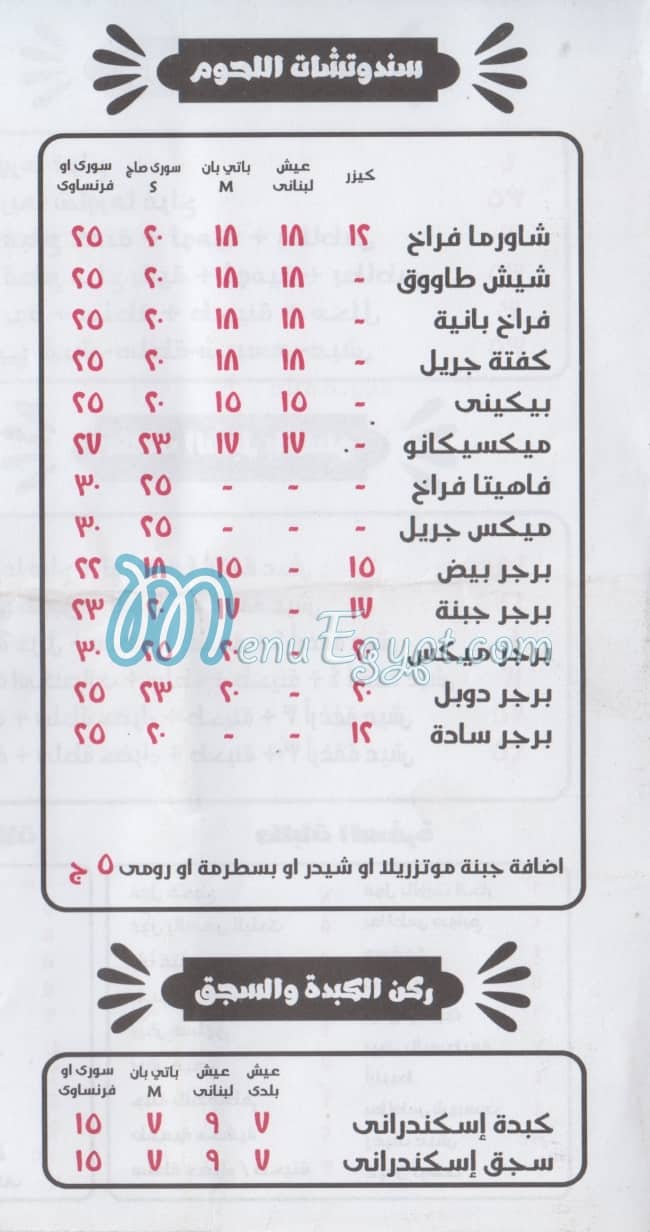 سندوتشات اللحوم
كيزر عيش لبنانى باتي بان M سورى صاج S سورى او فرنساوى
شاورما فراخ ١٢ ١٨ ١٨ ٢٠ ٢٥
شيش طاووق - ١٨ ١٨ ٢٠ ٢٥
فراخ بانية - ١٨ ١٨ ٢٠ ٢٥
كفتة جريل - ١٨ ١٨ ٢٠ ٢٥
بيكينى - ١٥ ١٥ ٢٠ ٢٥
ميكسيكانو - ١٧ ١٧ ٢٣ ٢٧
فاهيتا فراخ - - - ٢٥ ٣٠
ميكس جريل - - - ٢٥ ٣٠
برجر بيض ١٥ - ١٥ ١٨ ٢٢
برجر جبنة ١٧ - ١٧ ٢٠ ٢٣
برجر ميكس ٢٠ - ٢٠ ٢٥ ٣٠
برجر دوبل ٢٠ - ٢٠ ٢٣ ٢٥
برجر سادة ١٢ - - ٢٠ ٢٥
MenuEgypt.com
اضافة جبنة موتزريلا او شيدر او بسطرمة او رومى ٥ ج
ركن الكبدة والسجق
عيش بلدى عيش لبنانى باتي بان M سورى او فرنساوى
كبدة إسكندرانى ٧ ٩ ٧ ١٥
سجق إسكندرانى ٧ ٩ ٧ ١٥